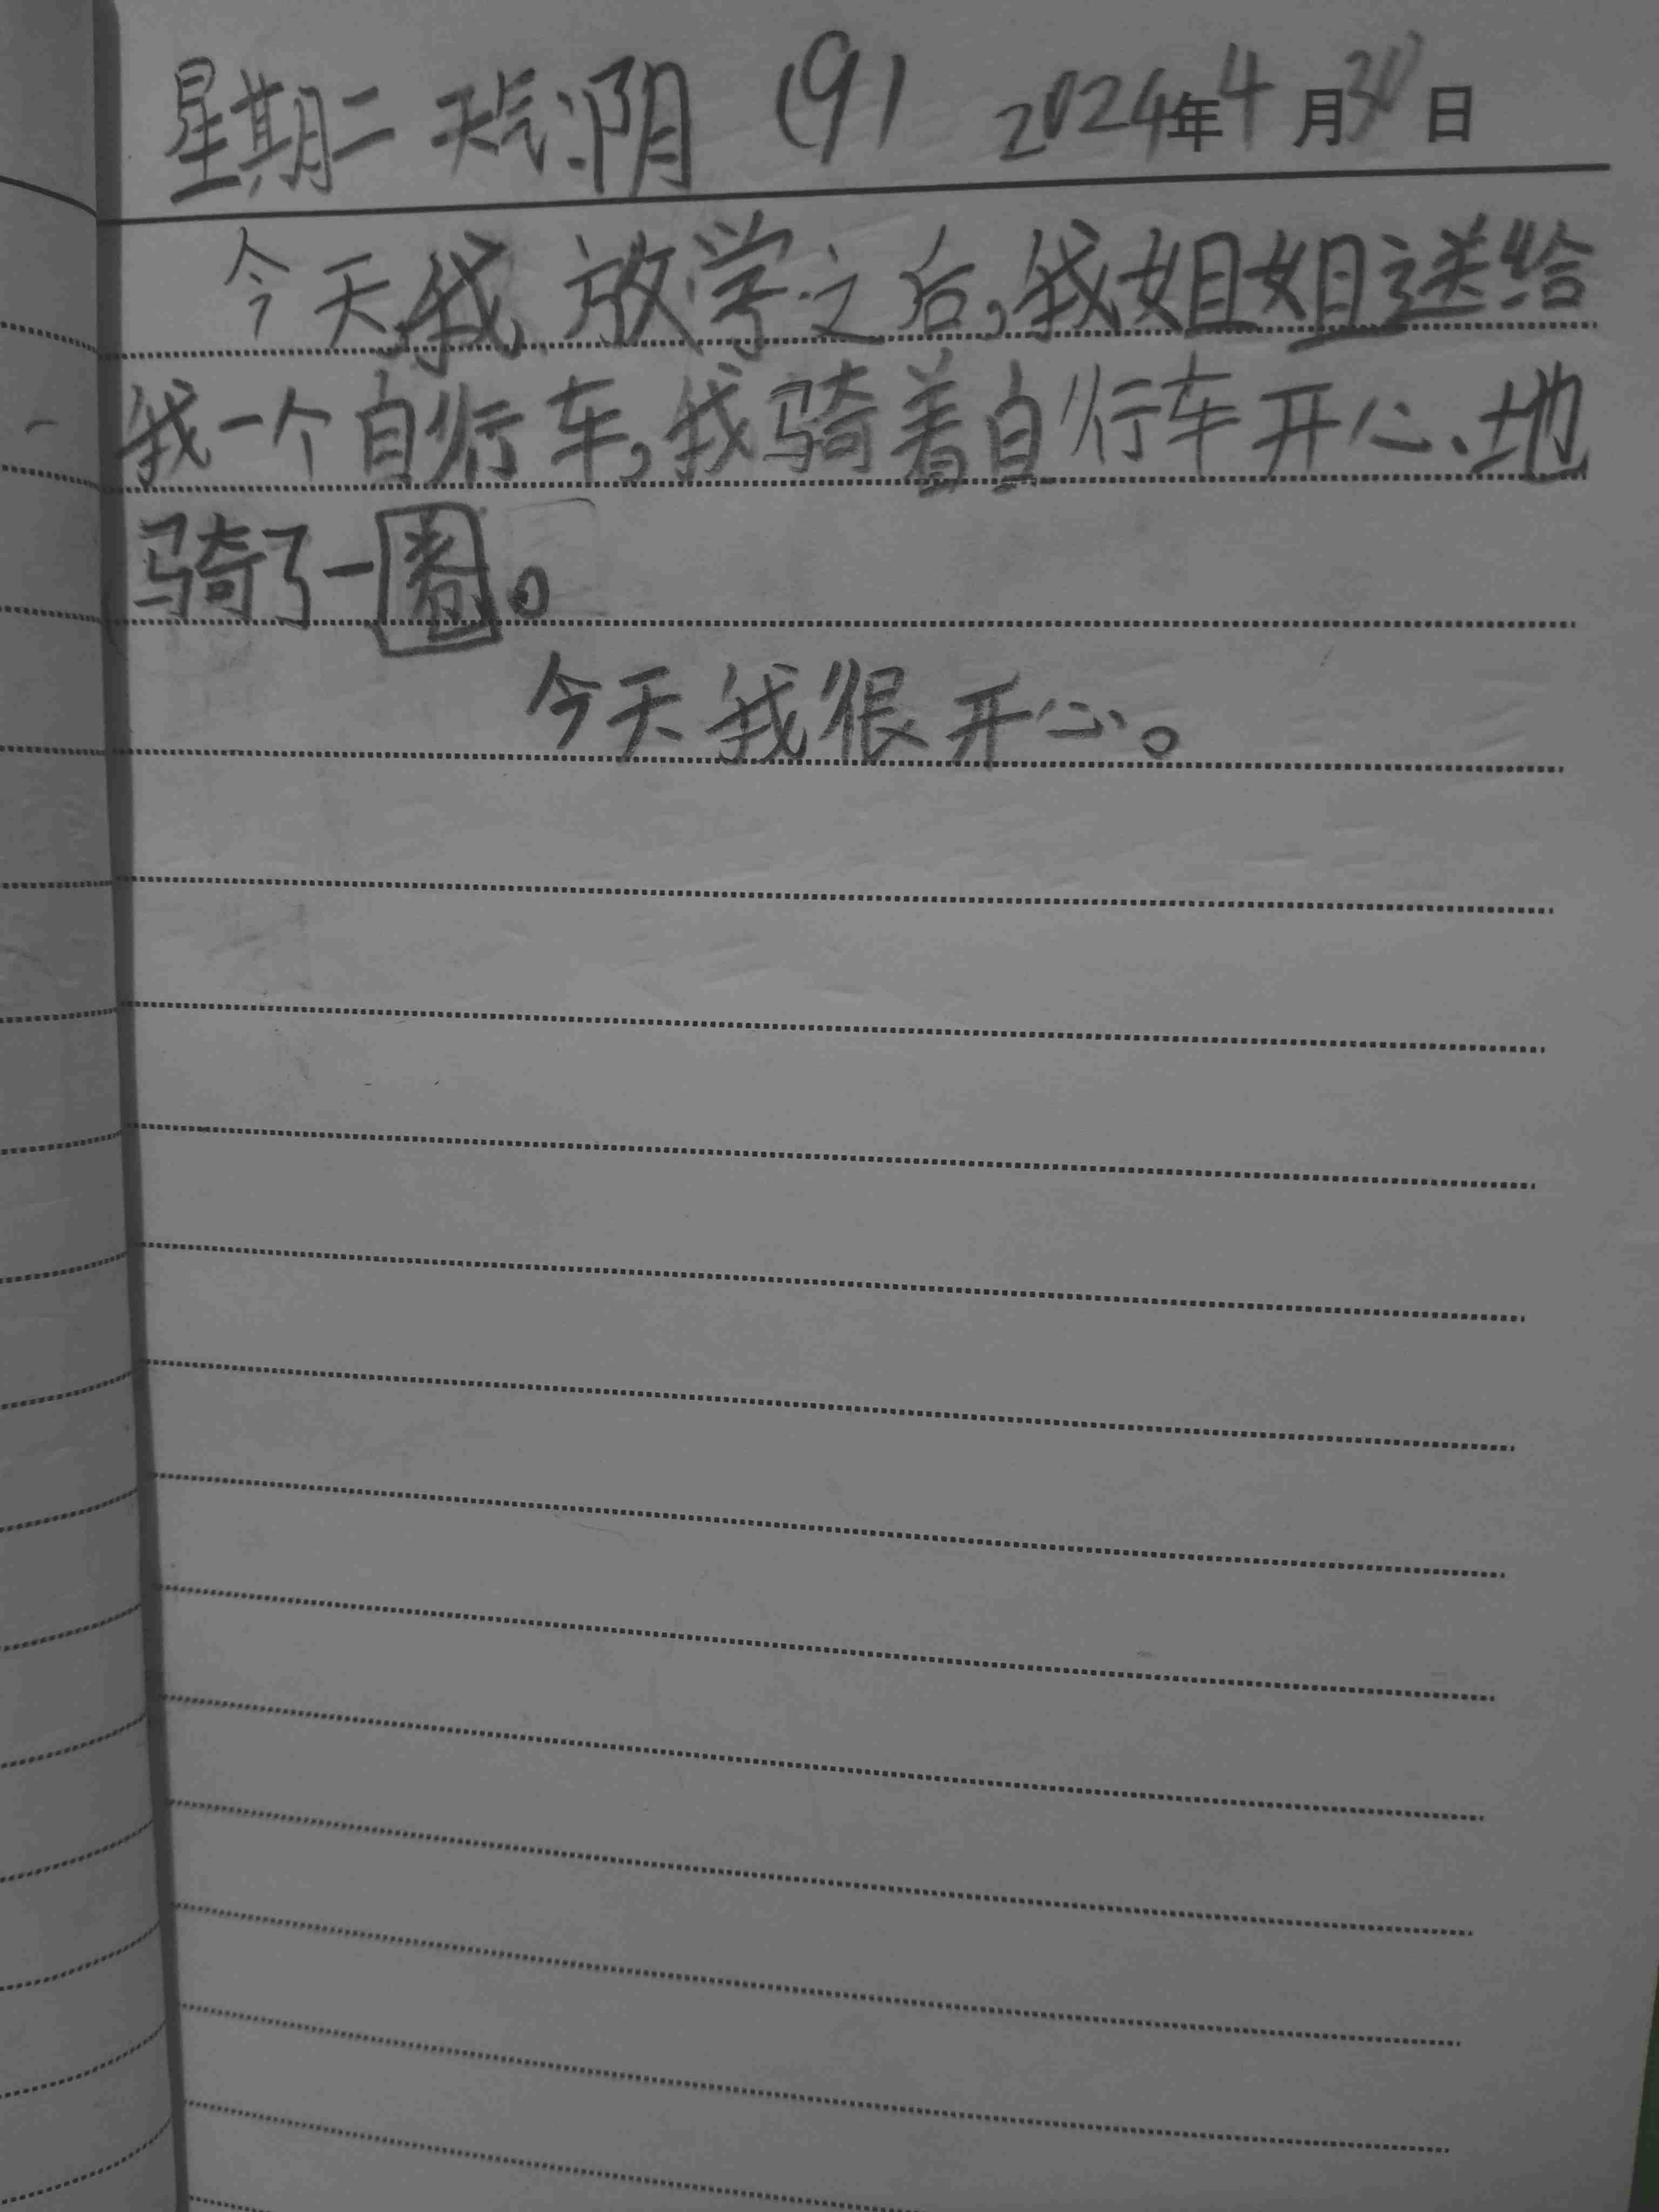 星期二 天气:阴 (9) 2024年4月30日
今天我放学之后,我姐姐送给
我一个自行车,我骑着自行车开心地
骑了一圈。
今天我很开心。